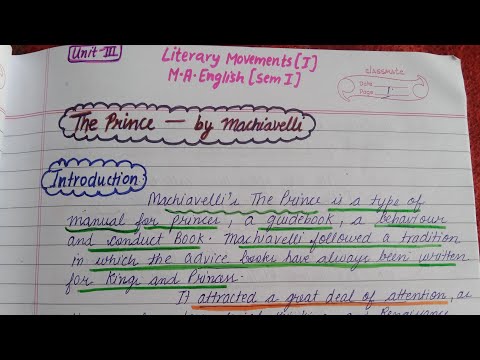 Unit-III
Literary Movements [I]
M.A. English [Sem I]
classmate
Date
Page 1
The Prince — by Machiavelli
Introduction:
Machiavelli's The Prince is a type of
manual for princes, a guidebook, a behaviour
and conduct book. Machiavelli followed a tradition
in which the advice books have always been written
for Kings and Princes.
It attracted a great deal of attention, as